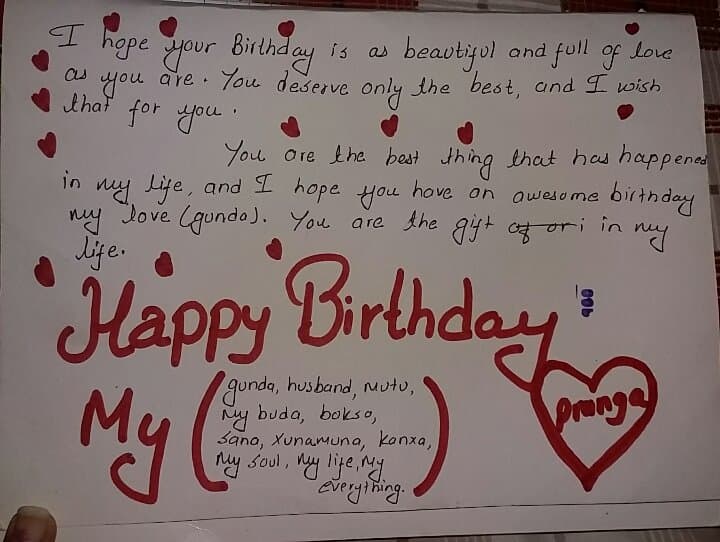 I hope your Birthday is as beautiful and full of love
as you are. You deserve only the best, and I wish
that for you.
You are the best thing that has happened
in my life, and I hope you have an awesome birthday
my love (gunda). You are the gift of or i in my
life.
Happy Birthday
My (gunda, husband, mutu,
my buda, bokso,
sana, xunamuna, kanxa,
my soul, my life, my
everything.)
pranga